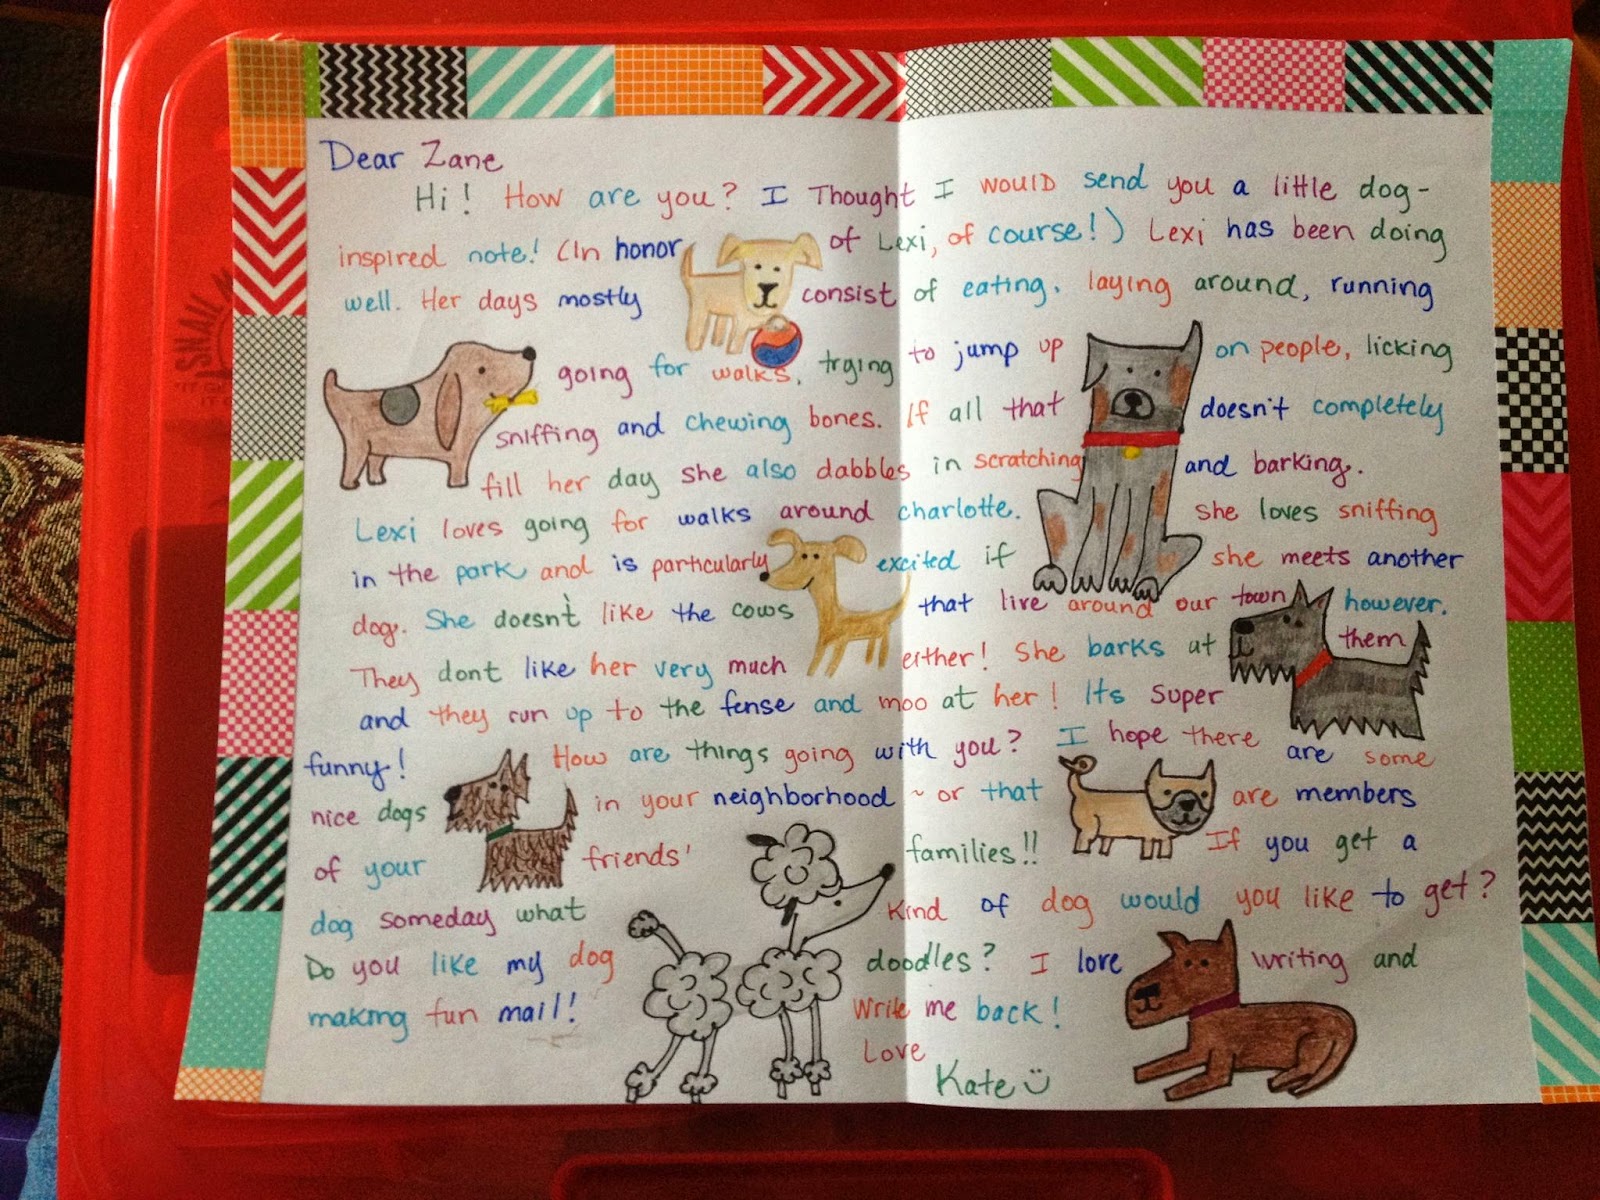 Dear Zane
Hi! How are you? I Thought I would send you a little dog-
inspired note! (In honor of Lexi, of course!) Lexi has been doing
well. Her days mostly consist of eating, laying around, running
going for walks, trying to jump up on people, licking
sniffing and chewing bones. If all that doesn't completely
fill her day she also dabbles in scratching and barking.
Lexi loves going for walks around charlotte. She loves sniffing
in the park and is particularly excited if she meets another
dog. She doesn't like the cows that live around our town however.
They dont like her very much either! She barks at them
and they run up to the fense and moo at her! Its Super
funny! How are things going with you? I hope there are some
nice dogs in your neighborhood ~ or that are members
of your friends' families!! If you get a
dog someday what kind of dog would you like to get?
Do you like my dog doodles? I love writing and
making fun mail! Write me back!
Love
Kate
SNAIL